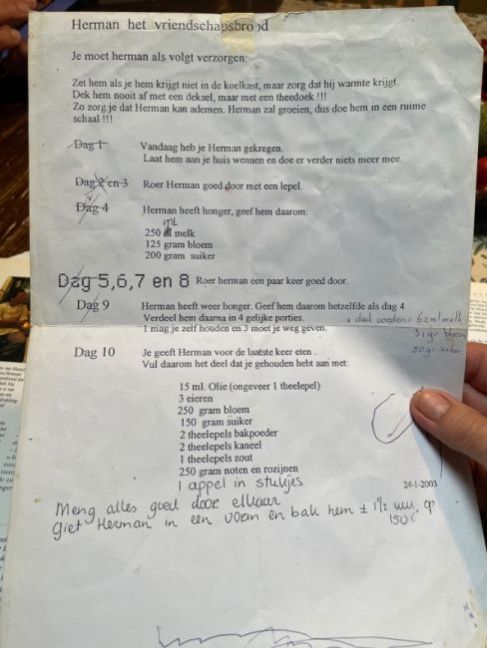 Herman het vriendschapsbrood
Je moet herman als volgt verzorgen:
Zet hem als je hem krijgt niet in de koelkast, maar zorg dat hij warmte krijgt.
Dek hem nooit af met een deksel, maar met een theedoek !!!
Zo zorg je dat Herman kan ademen. Herman zal groeien, dus doe hem in een ruime
schaal !!!
Dag 1 Vandaag heb je Herman gekregen.
Laat hem aan je huis wennen en doe er verder niets meer mee.
Dag 2 en 3 Roer Herman goed door met een lepel.
Dag 4 Herman heeft honger, geef hem daarom:
ml
250 melk
125 gram bloem
200 gram suiker
Dag 5,6,7 en 8 Roer herman een paar keer goed door.
Dag 9 Herman heeft weer honger. Geef hem daarom hetzelfde als dag 4
Verdeel hem daarna in 4 gelijke porties. 1 deel voeden = 62 ml melk
1 mag je zelf houden en 3 moet je weg geven. 31 gr bloem
Dag 10 Je geeft Herman voor de laatste keer eten . 50 gr suiker
Vul daarom het deel dat je gehouden hebt aan met:
15 ml. Olie (ongeveer 1 theelepel)
3 eieren
250 gram bloem
150 gram suiker
2 theelepels bakpoeder
2 theelepels kaneel
1 theelepels zout
250 gram noten en rozijnen
1 appel in stukjes 24-1-2003
Meng alles goed door elkaar
Giet Herman in een vorm en bak hem ± 1½ uur, op
150°C